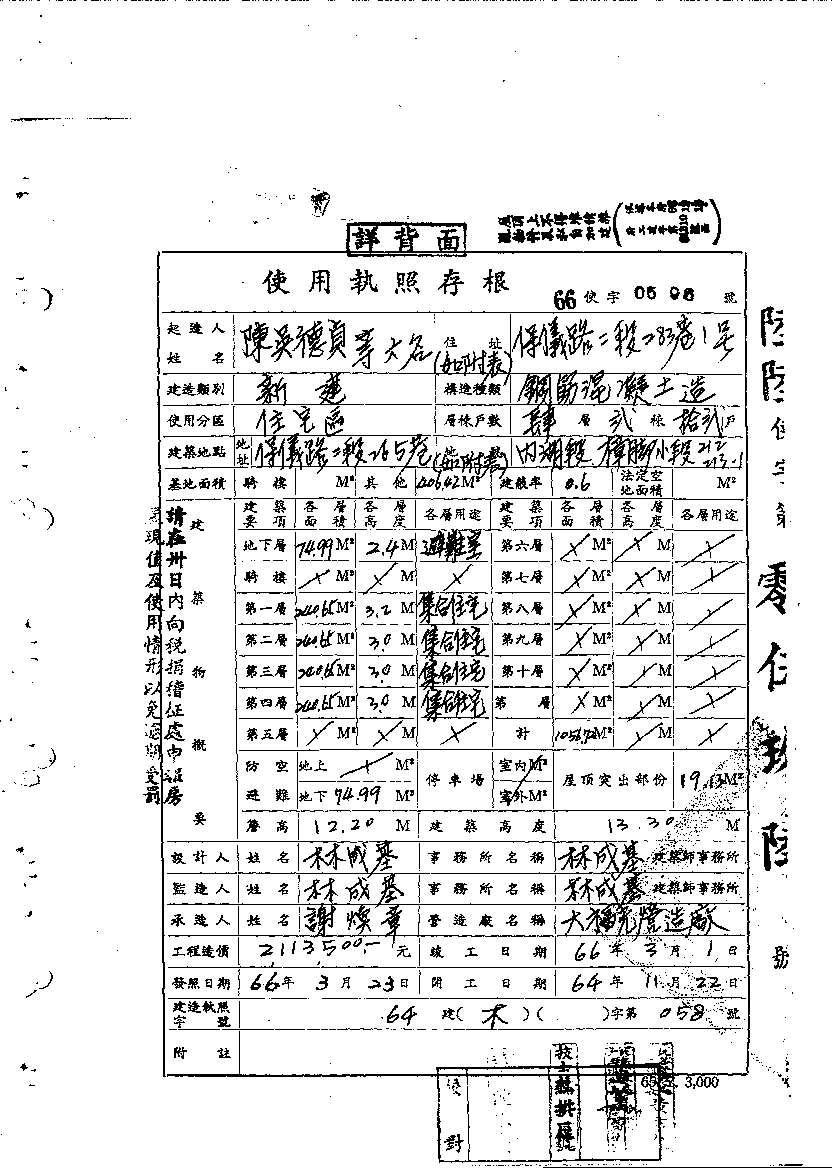 詳背面
使用執照存根
66使字0596號
起造人姓名 陳吳德貞等六名 住址 保儀路二段283巷1号(如附表)
建造類別 新建 構造種類 鋼筋混凝土造
使用分區 住宅區 層棟戶數 肆層貳棟拾貳戶
建築地點 地址 保儀路二段265巷(如附表) 內湖段樟腳小段212 213-1
基地面積 騎樓 M² 其他 406.42M² 建蔽率 0.6 法定空地面積 M²
建築概要
建築要項 各層面積 各層高度 各層用途 建築要項 各層面積 各層高度 各層用途
地下層 74.99M² 2.4M 避難室 第六層 M² M
騎樓 M² M 第七層 M² M
第一層 240.65M² 3.2M 集合住宅 第八層 M² M
第二層 240.65M² 3.0M 集合住宅 第九層 M² M
第三層 240.65M² 3.0M 集合住宅 第十層 M² M
第四層 240.65M² 3.0M 集合住宅 第 層 M² M
第五層 M² M 計 1056.72M² M
防空避難 地上 M² 停車場 室內M² 屋頂突出部份 19.13M²
地下 74.99 M² 室外M²
簷高 12.20 M 建築高度 13.30 M
設計人 姓名 林成基 事務所名稱 林成基建築師事務所
監造人 姓名 林成基 事務所名稱 林成基建築師事務所
承造人 姓名 謝煥章 營造廠名稱 營造廠
工程造價 2113500.-元 竣工日期 66年3月1日
發照日期 66年3月23日 開工日期 64年11月22日
建造執照字號 64建(木)( )字第058號
附註
請在卅日內向稅捐稽征處申報房
現值及使用情形以免逾期受罰
陸陸使字第零伍玖陸號
3,000
校對